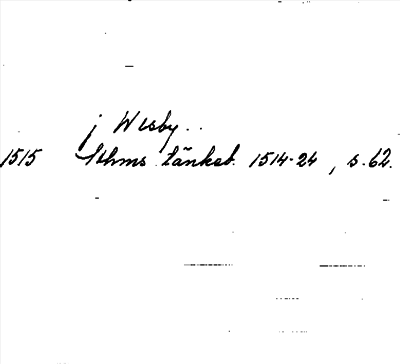 j Wisby..
1515 Sthms tänkeb. 1514-24, s. 62.